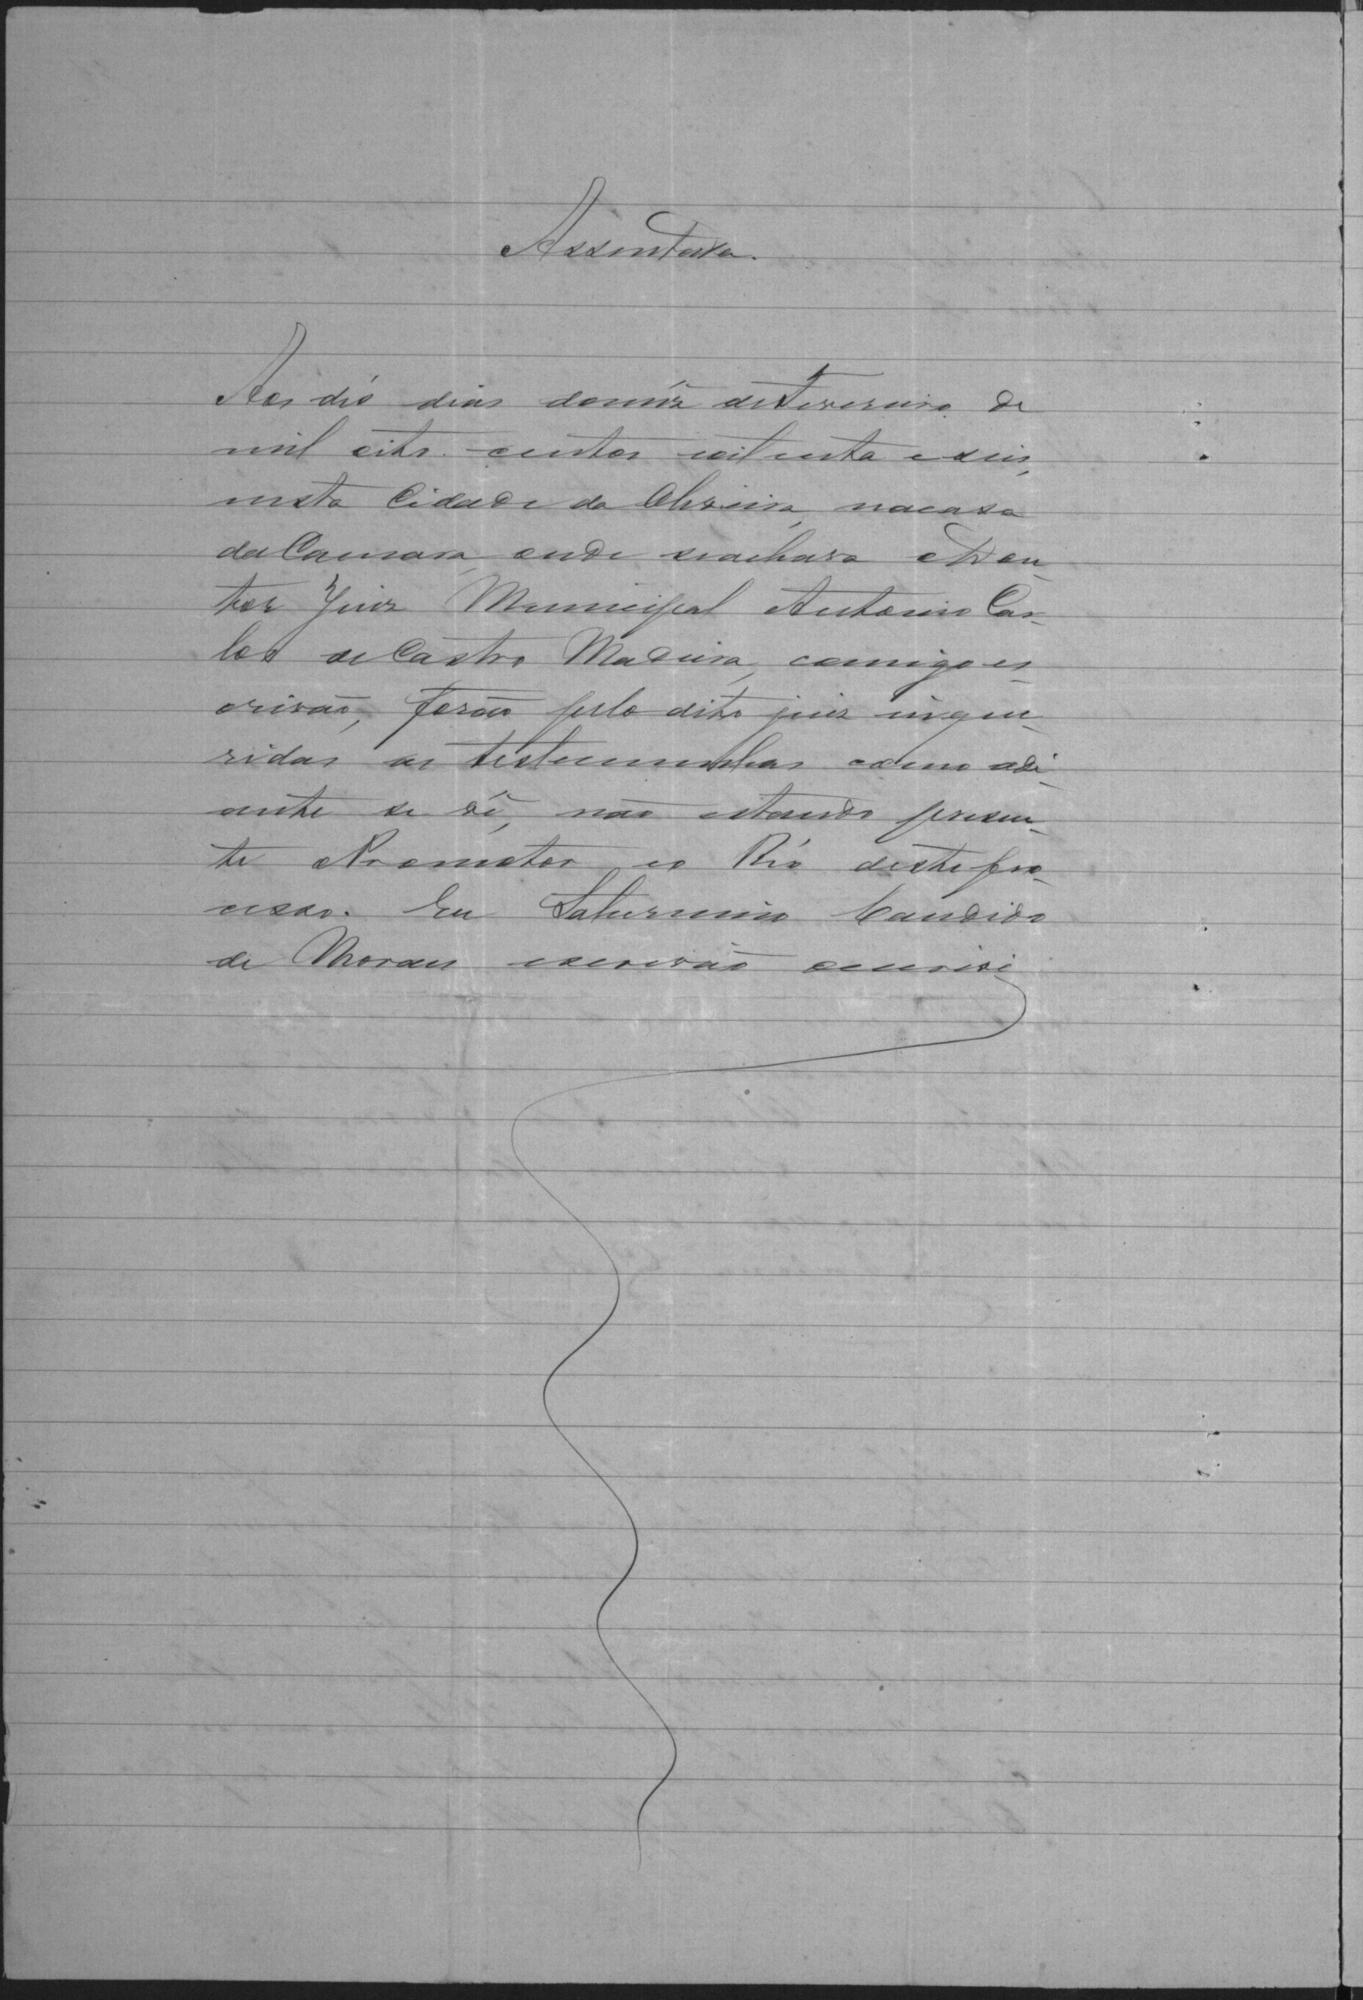 Assentada.
Aos dés dias domêz defevereiro de
mil oito centos eoitenta eseis,
nesta Cidade da Oliveira, nacasa
daCamara onde seachava oDou-
tor Juiz Municipal Antonio Car-
los deCastro Madeira, comigo es-
crivão, forão pelo dito juiz inque-
ridas as testemunhas como adi-
ante se vê, não estando presen-
te oPromotor eo Réo destepro-
cesso. Eu Saturnino Candido
de Moraes escrivão oescrivi